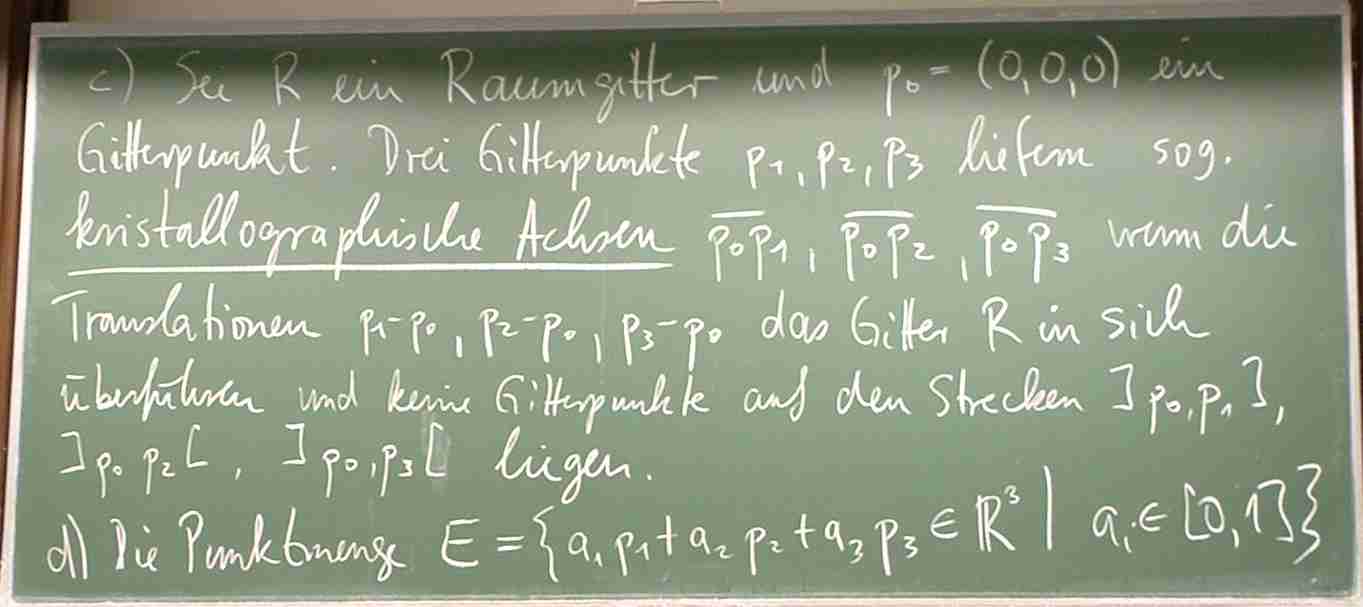 c) Sei R ein Raumgitter und p₀ = (0,0,0) ein
Gitterpunkt. Drei Gitterpunkte p₁, p₂, p₃ liefern sog.
kristallographische Achsen p̅₀p̅₁, p̅₀p̅₂, p̅₀p̅₃ wenn die
Translationen p₁-p₀, p₂-p₀, p₃-p₀ das Gitter R in sich
überführen und keine Gitterpunkte auf den Strecken ]p₀,p₁],
]p₀ p₂[, ]p₀,p₃[ liegen.
d) Die Punktmenge E = {a₁p₁+a₂p₂+a₃p₃ ∈ ℝ³ | aᵢ ∈ [0,1]}